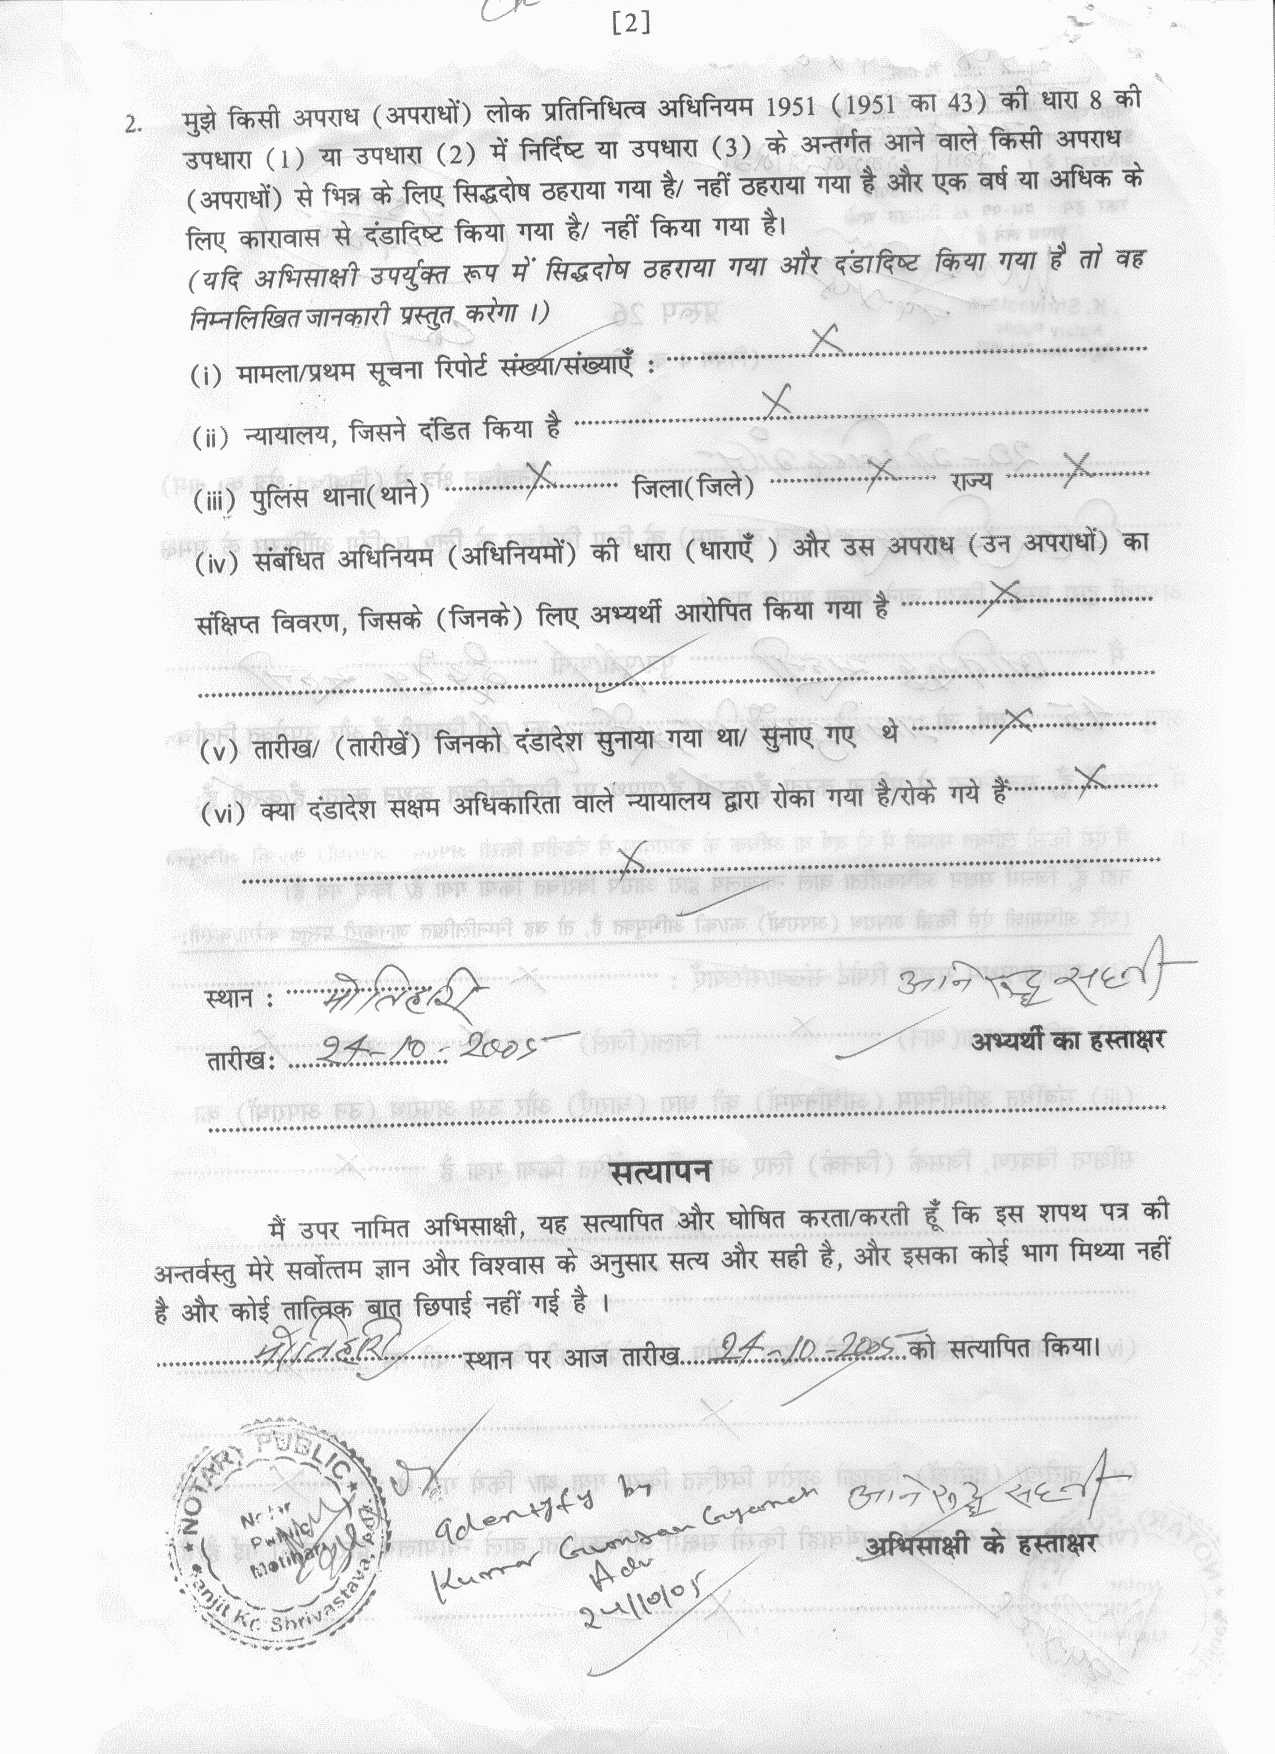 [2]
2. मुझे किसी अपराध (अपराधों) लोक प्रतिनिधित्व अधिनियम 1951 (1951 का 43) की धारा 8 की
उपधारा (1) या उपधारा (2) में निर्दिष्ट या उपधारा (3) के अन्तर्गत आने वाले किसी अपराध
(अपराधों) से भिन्न के लिए सिद्धदोष ठहराया गया है/ नहीं ठहराया गया है और एक वर्ष या अधिक के
लिए कारावास से दंडादिष्ट किया गया है/ नहीं किया गया है।
(यदि अभिसाक्षी उपर्युक्त रूप में सिद्धदोष ठहराया गया और दंडादिष्ट किया गया है तो वह
निम्नलिखित जानकारी प्रस्तुत करेगा ।)
(i) मामला/प्रथम सूचना रिपोर्ट संख्या/संख्याएँ : X
(ii) न्यायालय, जिसने दंडित किया है X
(iii) पुलिस थाना(थाने) X जिला(जिले) X राज्य X
(iv) संबंधित अधिनियम (अधिनियमों) की धारा (धाराएँ ) और उस अपराध (उन अपराधों) का
संक्षिप्त विवरण, जिसके (जिनके) लिए अभ्यर्थी आरोपित किया गया है X
(v) तारीख/ (तारीखें) जिनको दंडादेश सुनाया गया था/ सुनाए गए थे X
(vi) क्या दंडादेश सक्षम अधिकारिता वाले न्यायालय द्वारा रोका गया है/रोके गये हैं X
X
स्थान : मोतिहारी
तारीख: 24-10-2005
अभ्यर्थी का हस्ताक्षर
सत्यापन
मैं उपर नामित अभिसाक्षी, यह सत्यापित और घोषित करता/करती हूँ कि इस शपथ पत्र की
अन्तर्वस्तु मेरे सर्वोत्तम ज्ञान और विश्वास के अनुसार सत्य और सही है, और इसका कोई भाग मिथ्या नहीं
है और कोई तात्विक बात छिपाई नहीं गई है ।
मोतिहारी स्थान पर आज तारीख 24-10-2005 को सत्यापित किया।
NOTARY PUBLIC
Ranjit Kr. Shrivastava
Motihari
Identify by
Kumar Gunjan
Adv
24/10/05
अभिसाक्षी के हस्ताक्षर